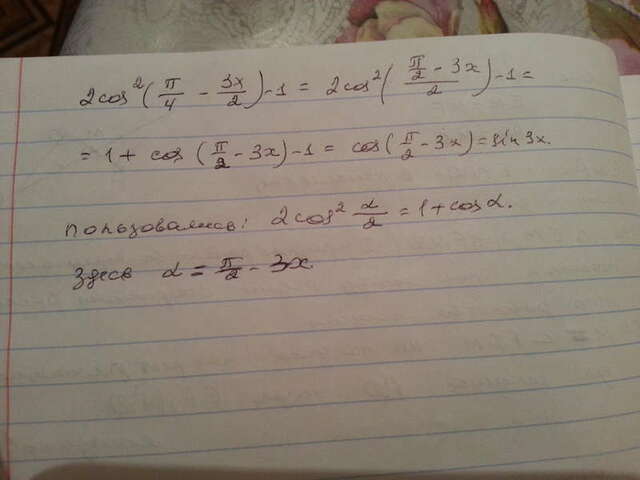 2cos²(π/4 - 3x/2)-1 = 2cos²((π/2 - 3x)/2)-1=
= 1 + cos(π/2 - 3x)-1 = cos(π/2 - 3x) = sin 3x.
пользовались: 2cos² α/2 = 1 + cos α.
здесь α = π/2 - 3x